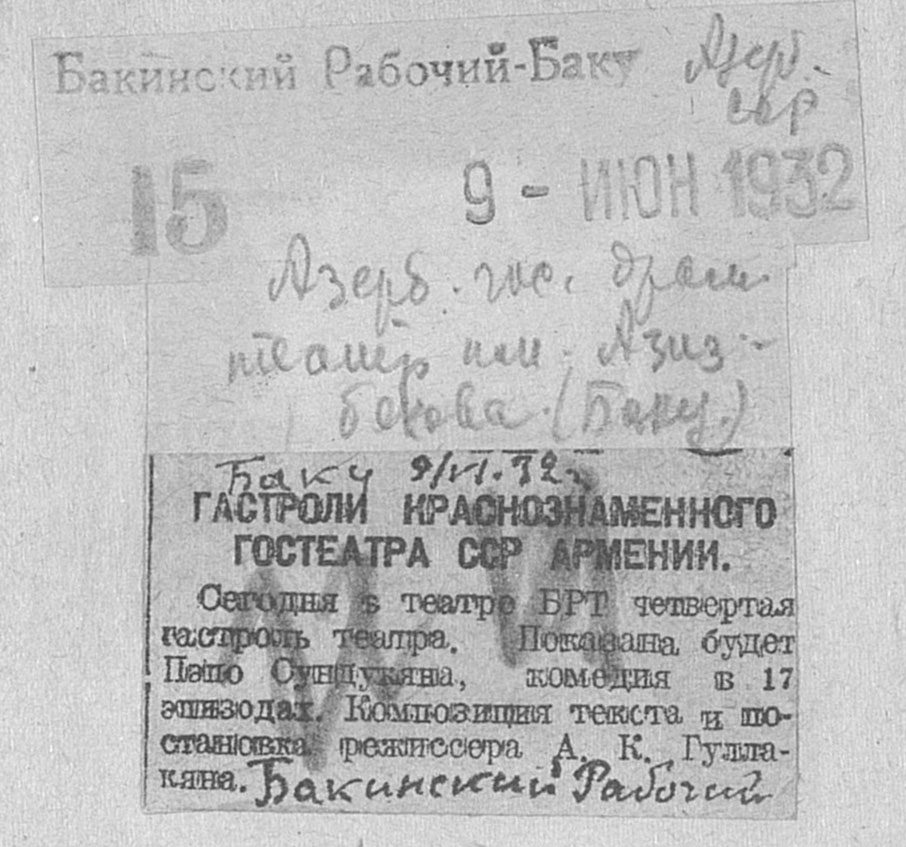 Бакинский Рабочий-Баку Азер.
сср
15 9 - ИЮН 1932
Азерб. гос. драм.
театр им. Азиз-
бекова (Баку)
Баку 9/VI.32.
ГАСТРОЛИ КРАСНОЗНАМЕННОГО
ГОСТЕАТРА ССР АРМЕНИИ.
Сегодня в театре БРТ четвертая
гастроль театра. Показана будет
Пэпо Сундукяна, комедия в 17
эпизодах. Композиция текста и по-
становка режиссера А. К. Гулла-
кяна. Бакинский Рабочий